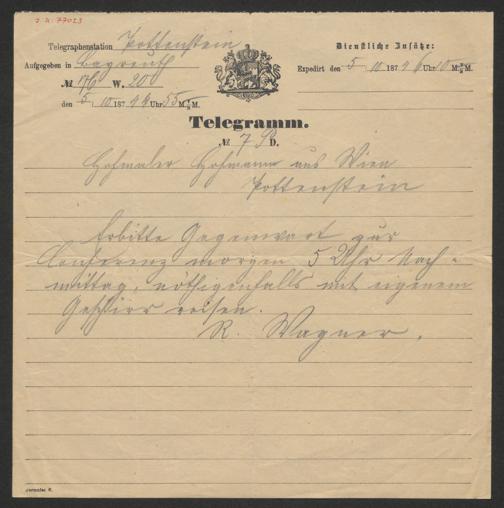 J. N. 77023
Telegraphenstation Pottenstein
Aufgegeben in Bayreuth
№ 176 W. 20
den 5 10 187 4 4 Uhr 55 M. M.
Dienstliche Zusätze:
Expedirt den 5 10 187 4 6 Uhr 10 M. M.
Telegramm.
№ 7 D.
Hofmaler Hofmann aus Wien
Pottenstein
Erbitte Gegenwart zur
Conferenz morgen 5 Uhr Nach-
mittag, nöthigenfalls mit eigenem
Geschirr reisen.
R. Wagner.
Formular 6.